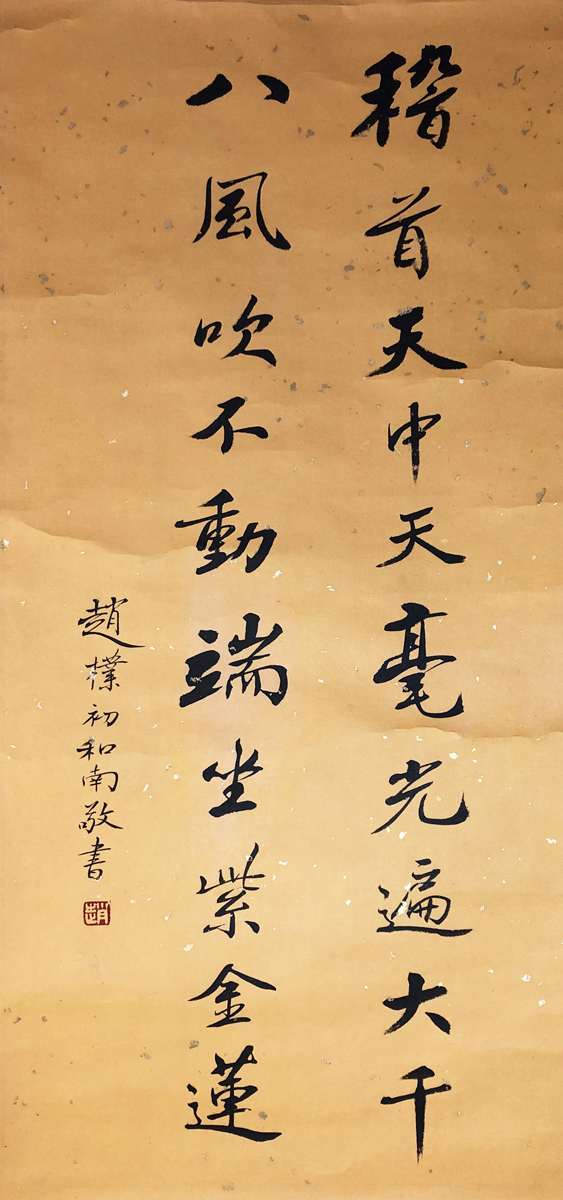 稽首天中天毫光遍大千
八風吹不動端坐紫金蓮
趙樸初和南敬書
趙